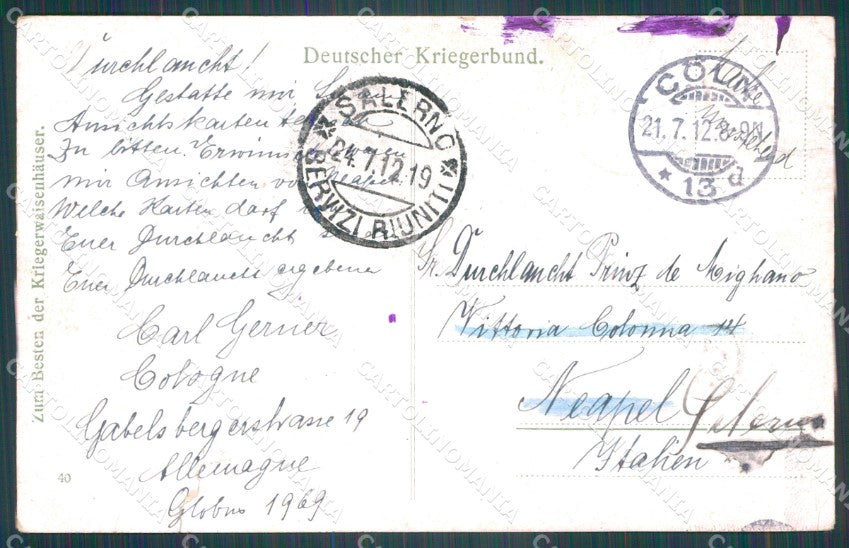 Deutscher Kriegerbund.
Zum Besten der Kriegerwaisenhäuser.
40
Durchlaucht!
Gestatte mir
Ansichtskarten
zu bitten. Erwünscht
mir Ansichten von Neapel
Welche Karten darf
Euer Durchlaucht
Euer Durchlaucht ergebener
Carl Gerner
Cologne
Gabelsbergerstrasse 19
Allemagne
Globus 1969
SALERNO
24.7.12.19
SERVIZI RIUNITI
CÖLN
21.7.12.8-9N
* 13 d
Sr. Durchlaucht Prinz de Mignano
Vittoria Colonna 14
Neapel Salerno
Italien
CARTOLINOMANIA